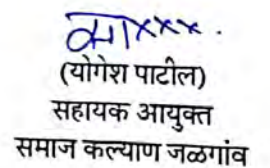 (योगेश पाटील)
सहायक आयुक्त
समाज कल्याण जळगांव